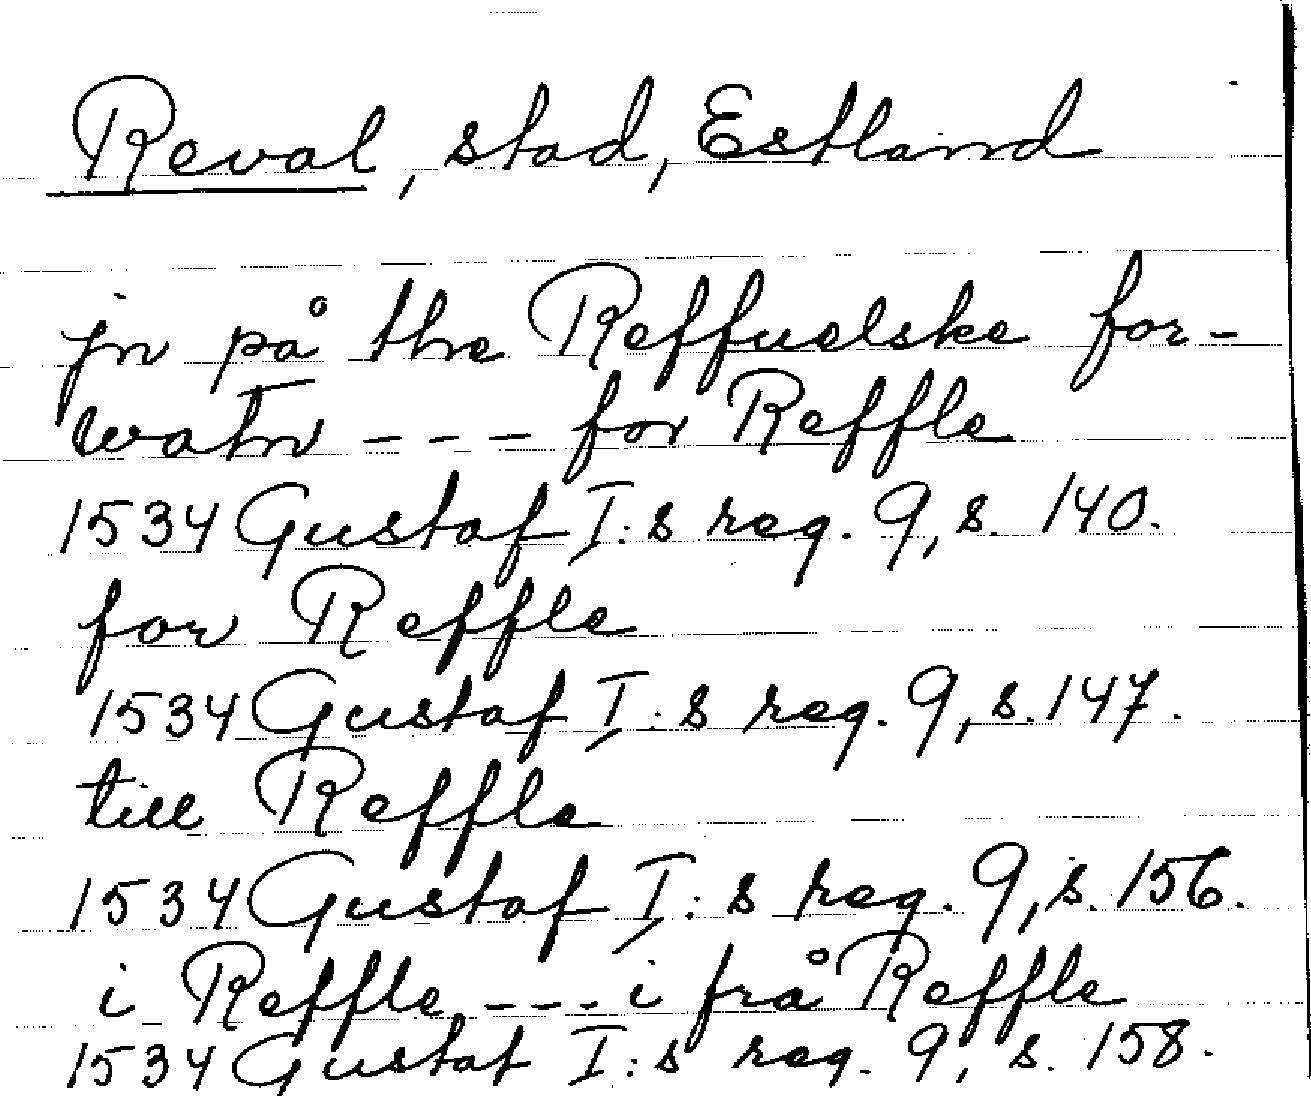 Reval, stad, Estland
jn på the Reffuelske for-
watn --- for Reffle
1534 Gustaf I:s reg. 9, s. 140.
for Reffle
1534 Gustaf I:s reg. 9, s. 147.
till Reffle
1534 Gustaf I:s reg. 9, s. 156.
i Reffle --- i frå Reffle
1534 Gustaf I:s reg. 9, s. 158.